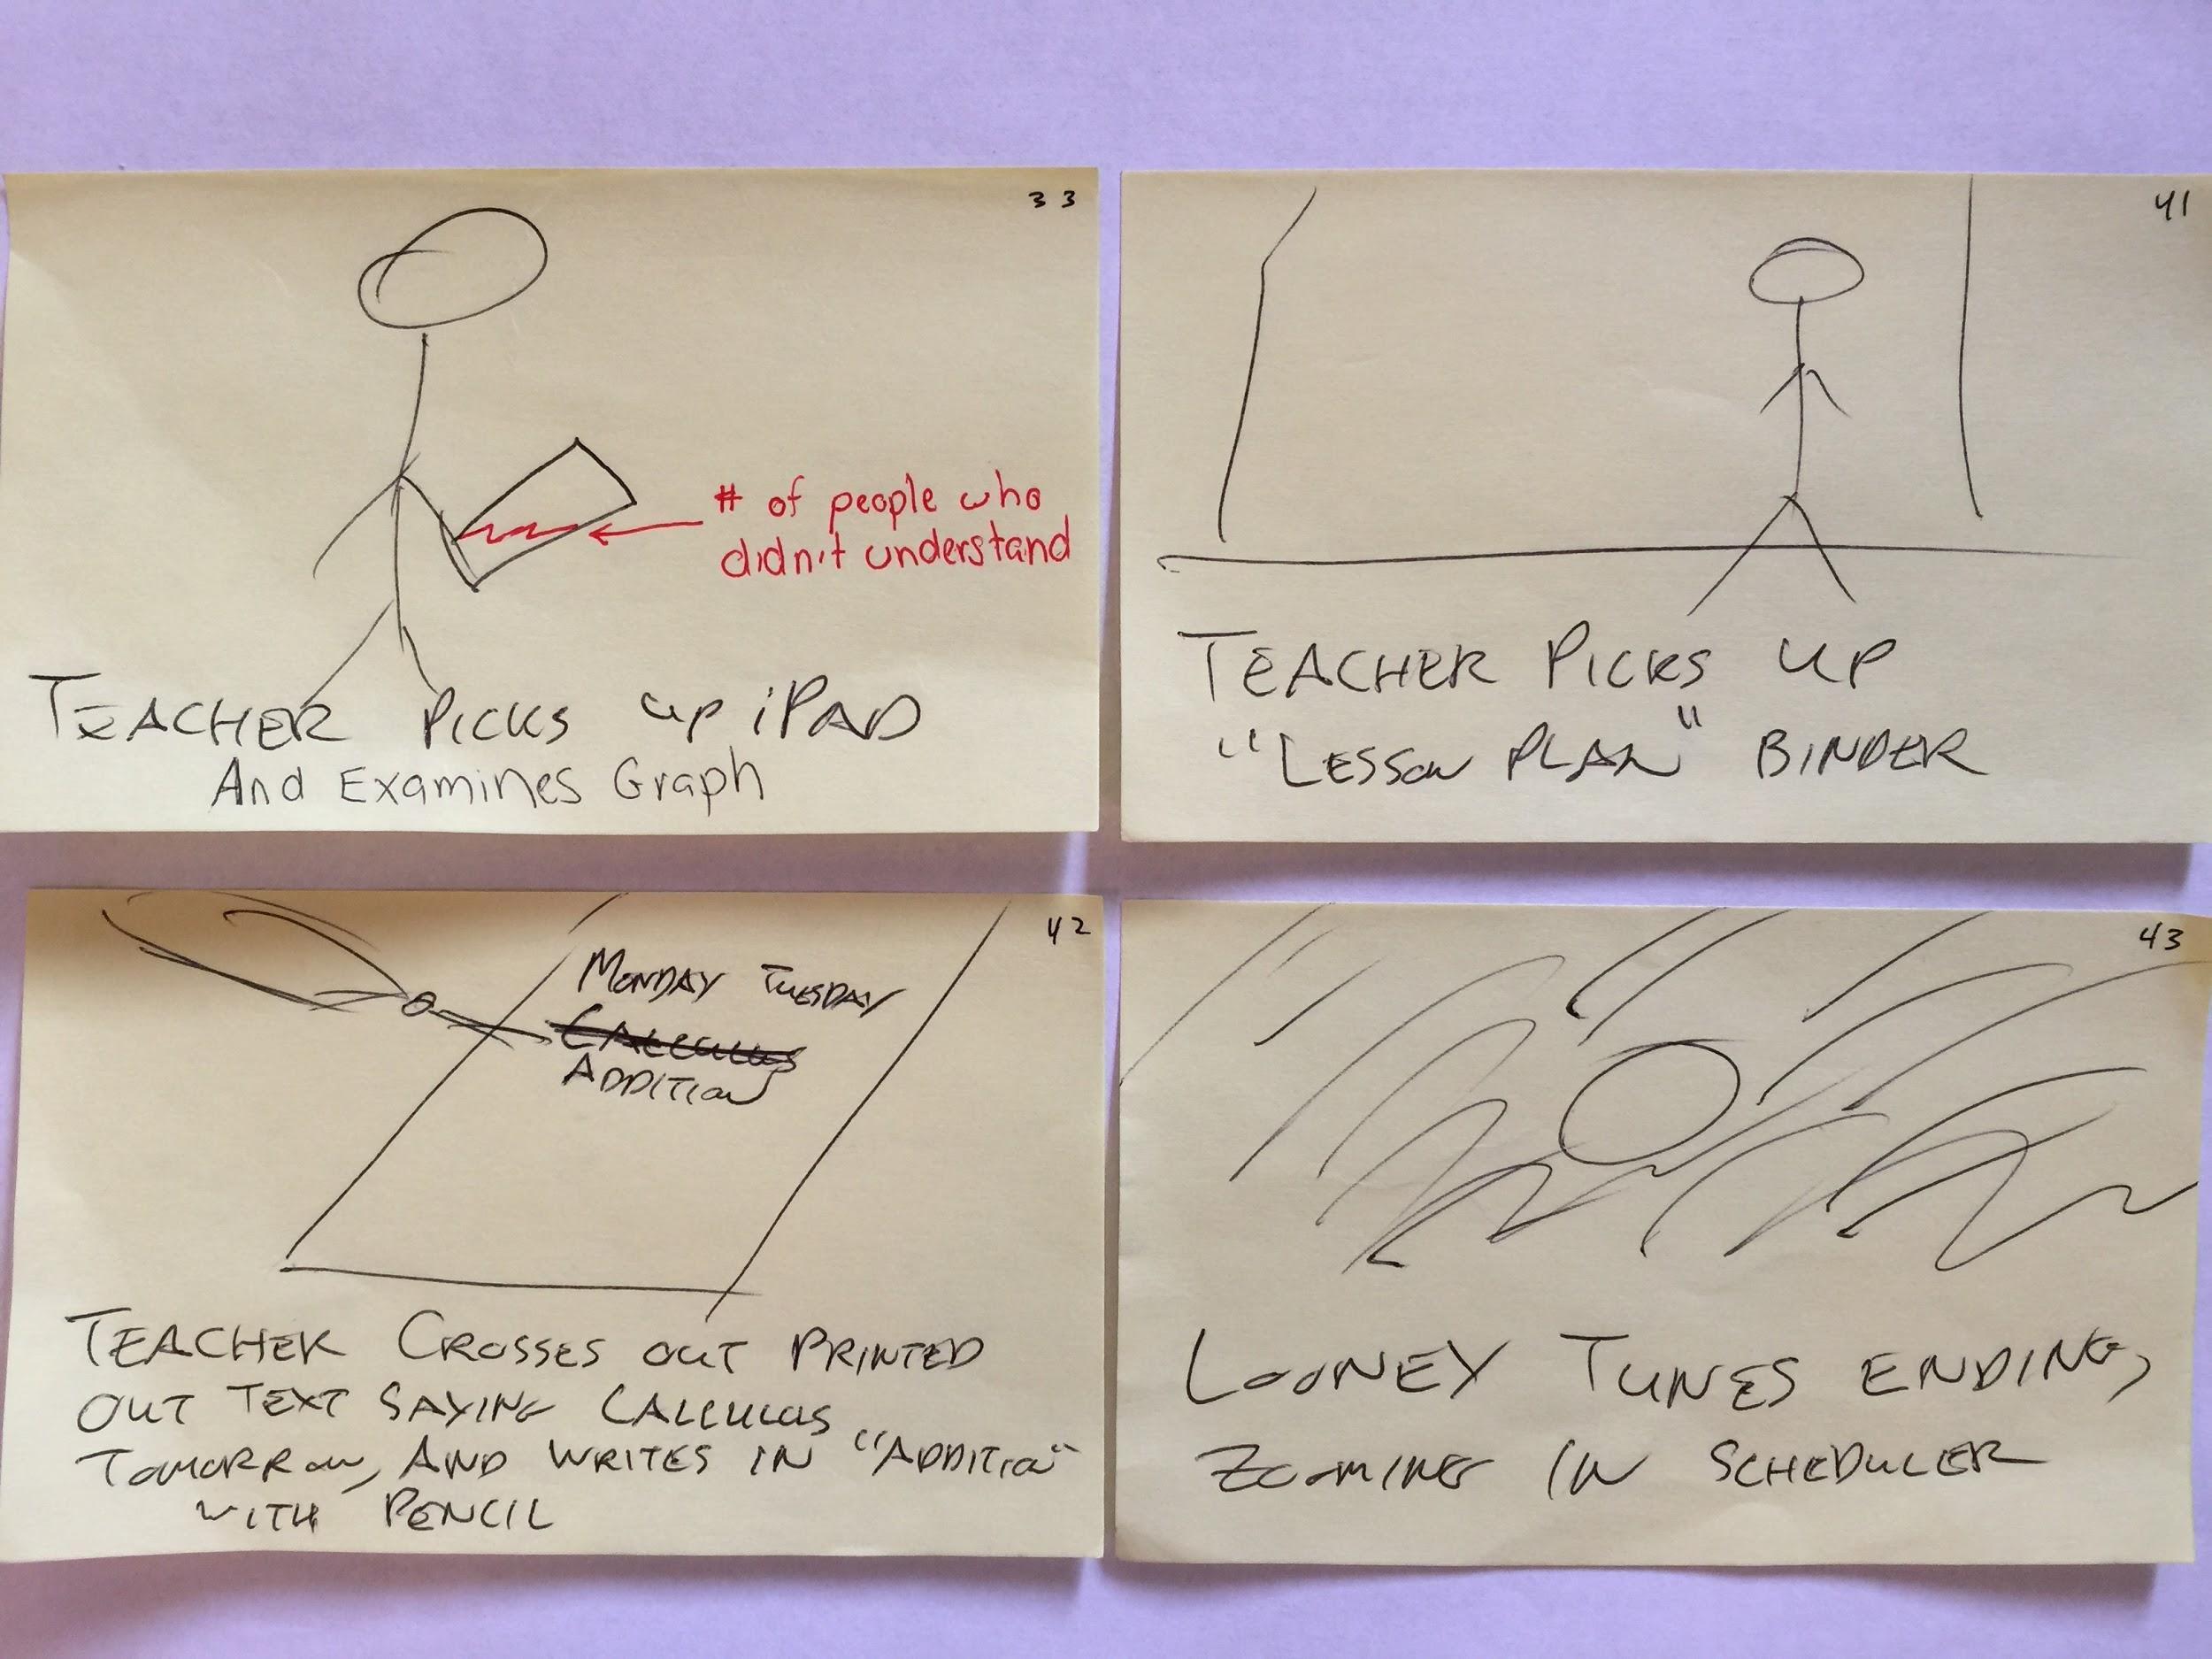 33
# of people who
didn't understand
TEACHER PICKS UP iPAD
And Examines Graph
41
TEACHER PICKS UP
"LESSON PLAN" BINDER
42
MONDAY TUESDAY
CALCULUS
ADDITION
TEACHER CROSSES OUT PRINTED
OUT TEXT SAYING CALCULUS
TOMORROW, AND WRITES IN "ADDITION"
WITH PENCIL
43
LOONEY TUNES ENDING,
ZOOMING IN SCHEDULER